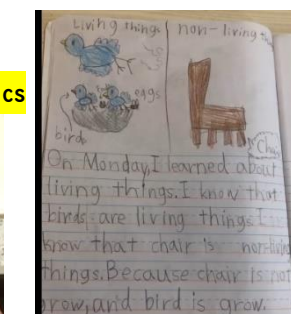 cs
Living things
non-living
eggs
birds
Chair
On Monday, I learned about
living things. I know that
birds are living things I
know that chair is non-living
things. Because chair is not
row, and bird is grow.